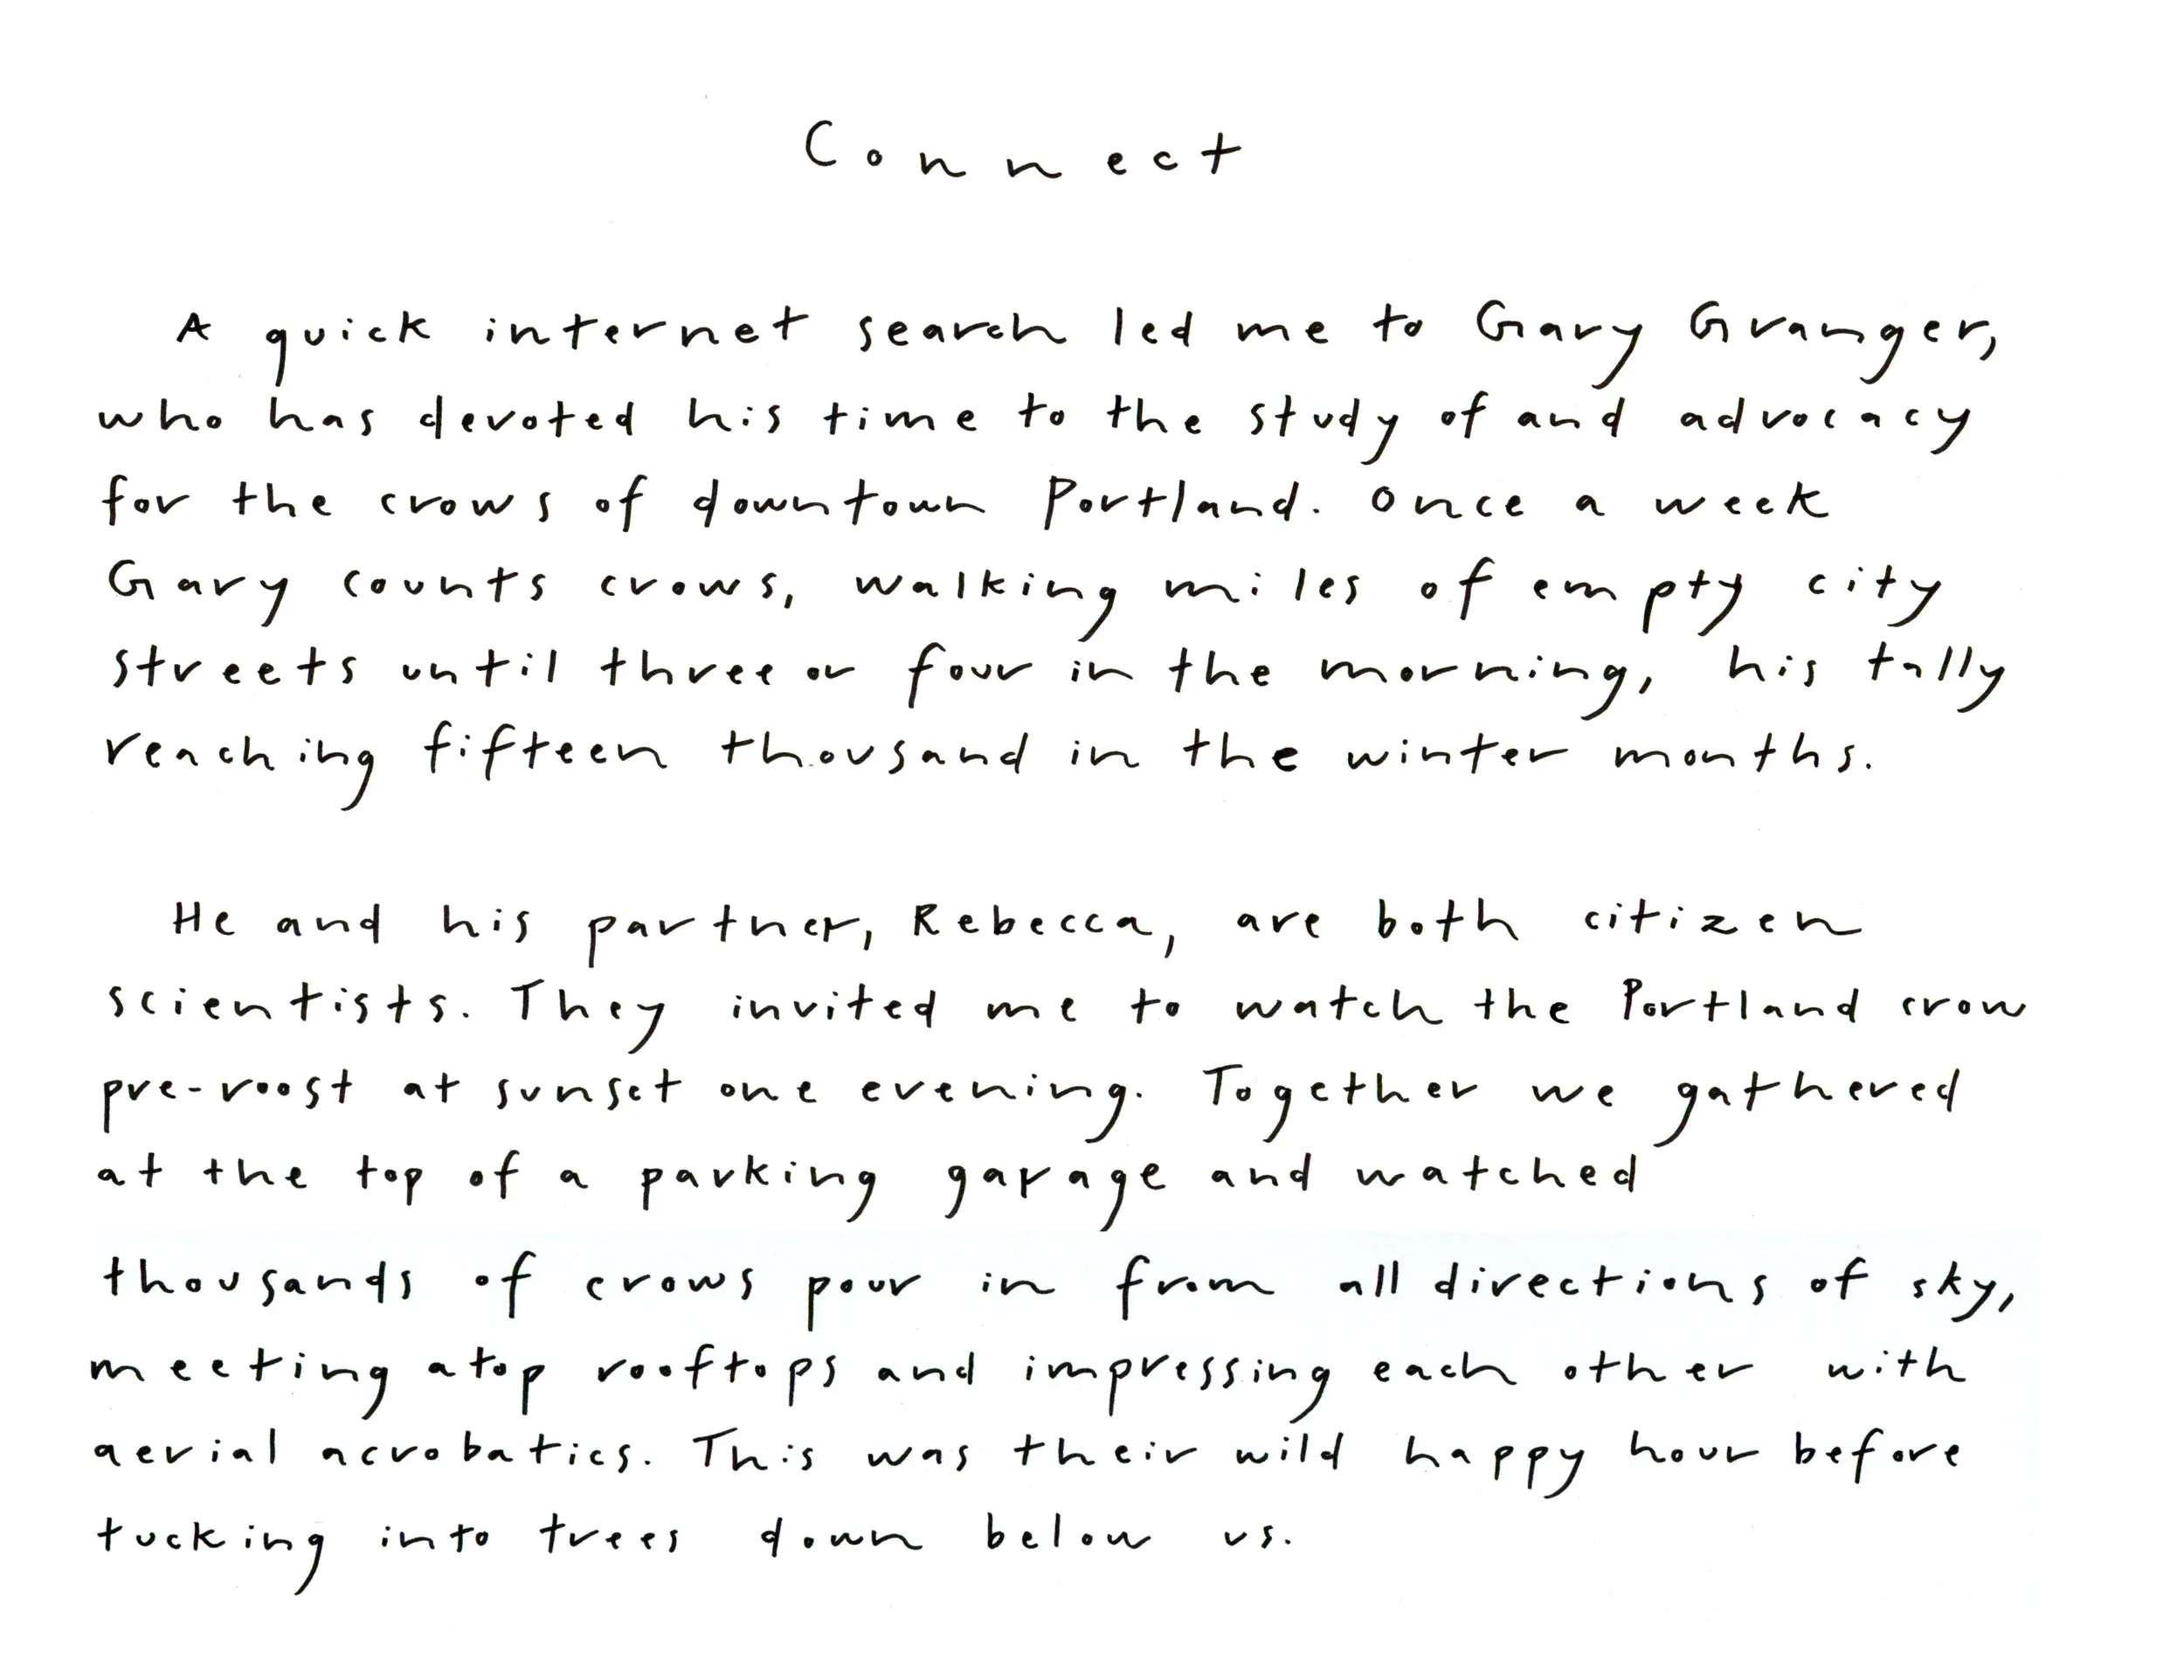 Connect
A quick internet search led me to Gary Granger,
who has devoted his time to the study of and advocacy
for the crows of downtown Portland. Once a week
Gary counts crows, walking miles of empty city
streets until three or four in the morning, his tally
reaching fifteen thousand in the winter months.
He and his partner, Rebecca, are both citizen
scientists. They invited me to watch the Portland crow
pre-roost at sunset one evening. Together we gathered
at the top of a parking garage and watched
thousands of crows pour in from all directions of sky,
meeting atop rooftops and impressing each other with
aerial acrobatics. This was their wild happy hour before
tucking into trees down below us.